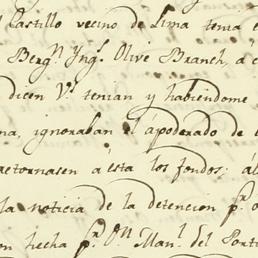 Castillo vecino de Lima tenia
Bergn Yngs. Olive Branch, á
dicen Vs. tenian y habiendome
na, ignoraban l'ápoderado de
retornasen a ésta los fondos: ál
la noticia de la detencion pr.
hecha pr. Dn Manl. del Porti